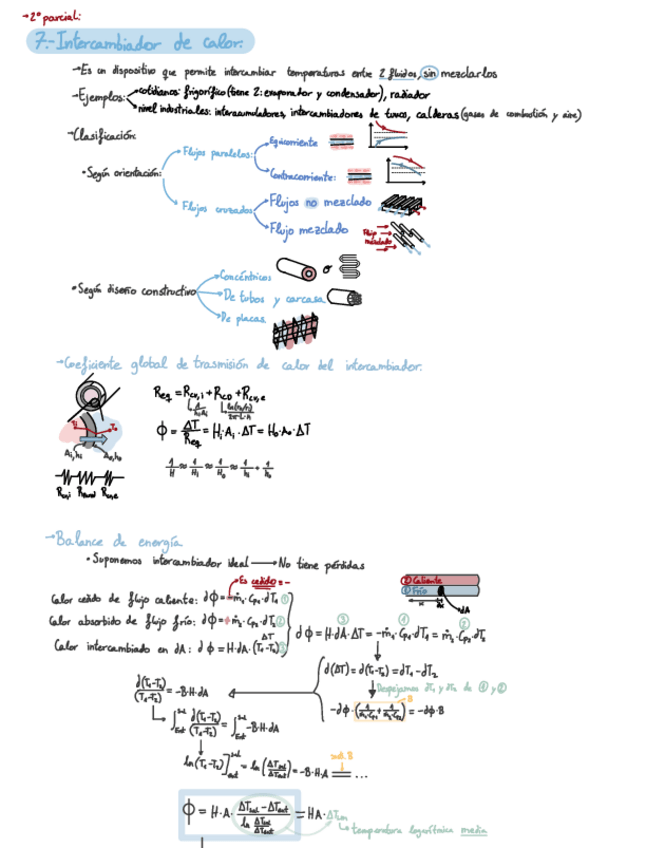 →2º parcial:
7.-Intercambiador de calor.
→Es un dispositivo que permite intercambiar temperaturas entre 2 fluidos, sin mezclarlos
→Ejemplos: cotidianos: frigorífico (tiene 2: evaporador y condensador), radiador
nivel industriales: interacumuladores, intercambiadores de tubos, calderas (gases de combustión y aire)
→Clasificación:
• Según orientación:
Flujos paralelos:
Equicorriente
Contracorriente:
Flujos cruzados
Flujos no mezclado
Flujo mezclado
Flujo mezclado
• Según diseño constructivo
Concéntricos
o
De tubos y carcasa
De placas
→Coeficiente global de trasmisión de calor del intercambiador.
Req = Rcv,i + Rcd + Rcv,e
1/(hi·Ai) ln(r2/r1)/(2π·L·k)
ϕ = ΔT/Req = Hi·Ai·ΔT = Ho·Ao·ΔT
1/H ≈ 1/Hi ≈ 1/Ho ≈ 1/hi + 1/ho
Ai,hi Ao,ho
Rcv,i Rcond Rcv,e
→Balance de energía
• Suponemos intercambiador ideal → No tiene pérdidas
Es cedido = -
② Caliente
① Frío
x dx
dA
Calor cedido de flujo caliente: dϕ = -ṁ1·Cp1·dT1 ①
Calor absorbido de flujo frío: dϕ = + ṁ2·Cp2·dT2 ②
Calor intercambiado en dA: dϕ = H·dA·(T1-T2) ③
ΔT
③ ① ②
dϕ = H·dA·ΔT = -ṁ1·Cp1·dT1 = ṁ2·Cp2·dT2
d(ΔT) = d(T1-T2) = dT1 - dT2
Despejamos dT1 y dT2 de ① y ②
-dϕ·(1/(ṁ1·Cp1) + 1/(ṁ2·Cp2)) = -dϕ·B
B
d(T1-T2)/(T1-T2) = -B·H·dA
∫ent^sal d(T1-T2)/(T1-T2) = ∫ent^sal -B·H·dA
ln(T1-T2)]ent^sal = ln(ΔTsal/ΔTent) = -B·H·A = ...
sust. B
ϕ = H·A·(ΔTsal - ΔTent)/(ln ΔTsal/ΔTent) = HA·ΔTlm
temperatura logarítmica media